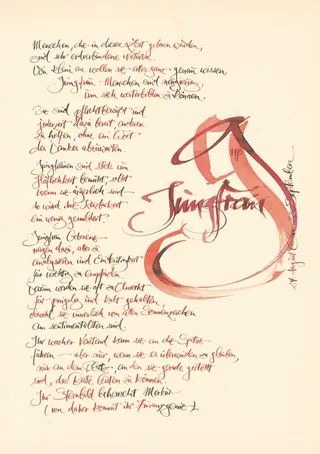 Menschen, die in dieser Zeit geboren wurden,
sind sehr erdverbundene
Von klein an wollen sie alles ganz genau wissen.
Jungfrau-Menschen sind neugierig,
um sich weiterbilden zu können.
Sie sind pflichtbewußt und
jederzeit dazu bereit, anderen
zu helfen, ohne ein Wort
des Dankes abzuwarten.
Jungfrauen sind stets um
Höflichkeit bemüht, selbst
wenn sie ärgerlich sind
so wird ihre
ein wenig gemildert.
Jungfrau Geborene
neigen dazu, alles zu
analysieren und
für wichtig zu empfinden.
Darum werden sie oft zu Unrecht
für pingelig und kalt gehalten,
obwohl sie innerlich von allen Sternzeichen
am sentimentalsten sind.
Ihr wacher Verstand kann sie an die Spitze
führen – aber nur, wenn sie es
nur an dem Platz, an den sie gerade gestellt
sind, das Beste leisten zu können.
Ihr Sternbild beherrscht Merkur
(von daher kommt ihr
Jungfrau
24. August
September